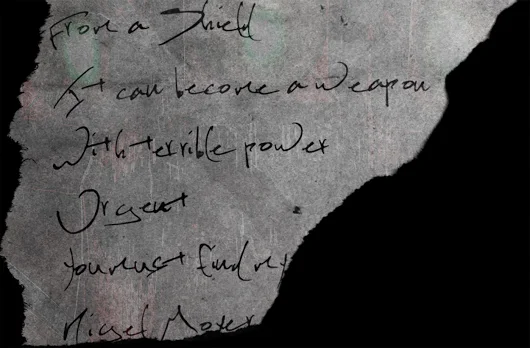 From a Shield
It can become a weapon
With terrible power
Urgent
You must find
Nigel